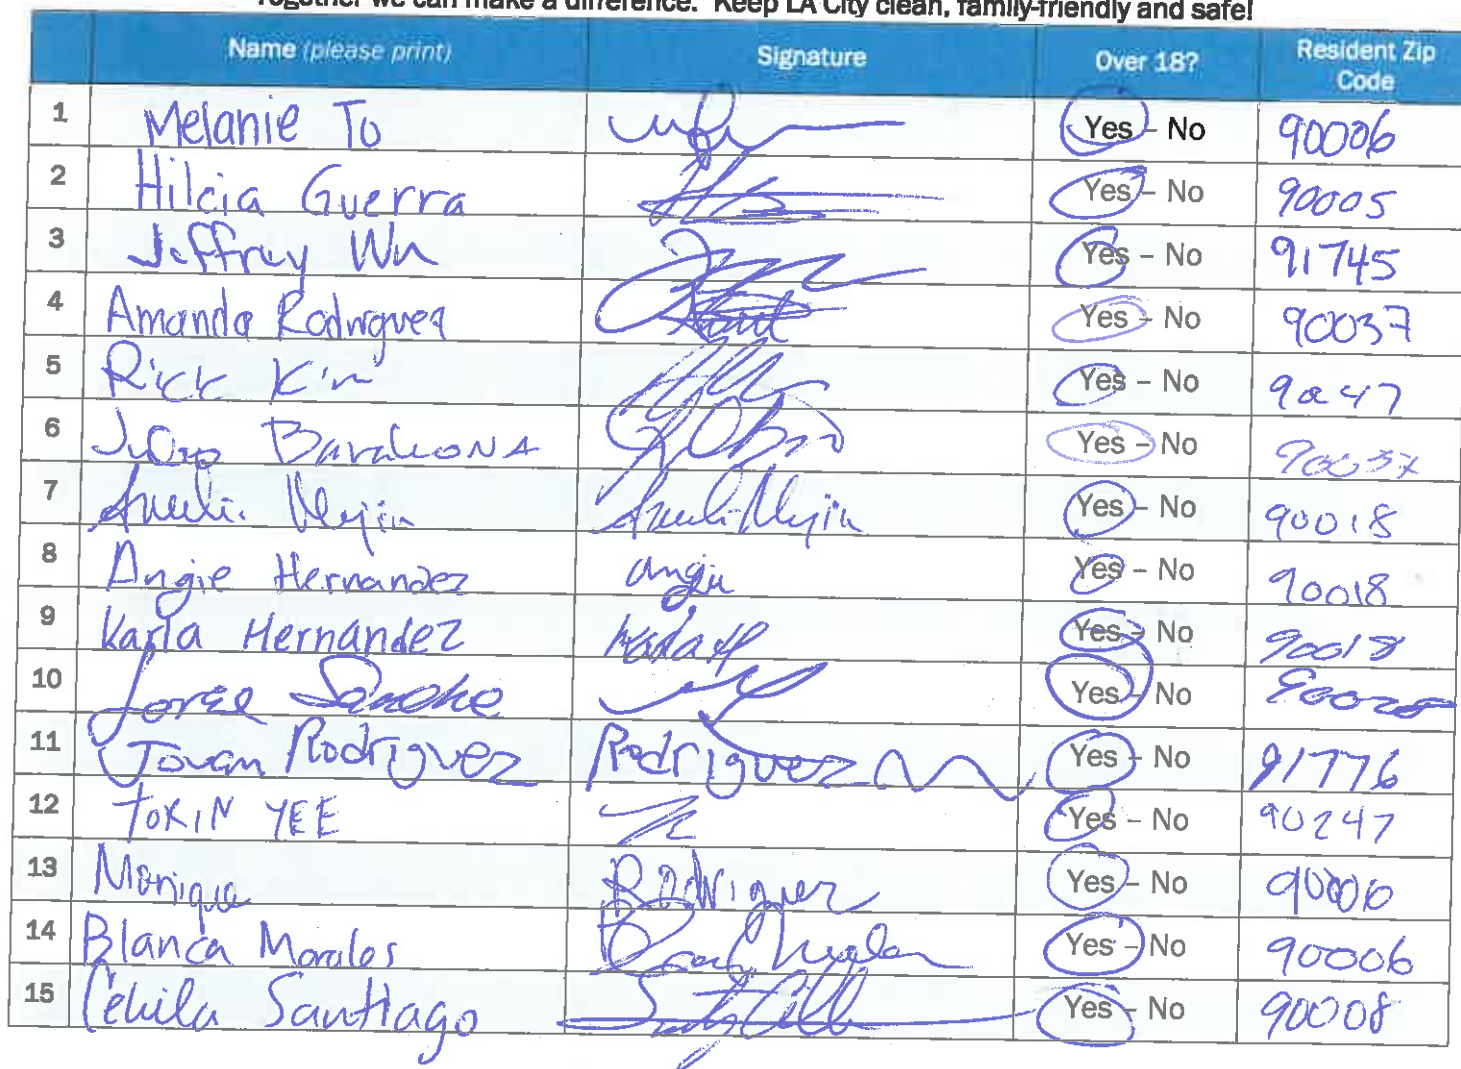 Together we can make a difference. Keep LA City clean, family-friendly and safe!
Name (please print) Signature Over 18? Resident Zip Code
1 Melanie To Yes - No 90006
2 Hilcia Guerra Yes - No 90005
3 Jeffrey Wu Yes - No 91745
4 Amanda Rodriguez Yes - No 90037
5 Rick Kim Yes - No
6 Yes - No
7 Yes - No 90018
8 Angie Hernandez Angie Yes - No 90018
9 Karla Hernandez Karla H Yes - No 90018
10 Jorge Yes - No
11 Jovan Rodriguez Rodriguez Yes - No 91776
12 TOKIN YEE Yes - No 90247
13 Monique Rodriguez Yes - No 90006
14 Blanca Morales Yes - No 90006
15 Santiago Yes - No 90008